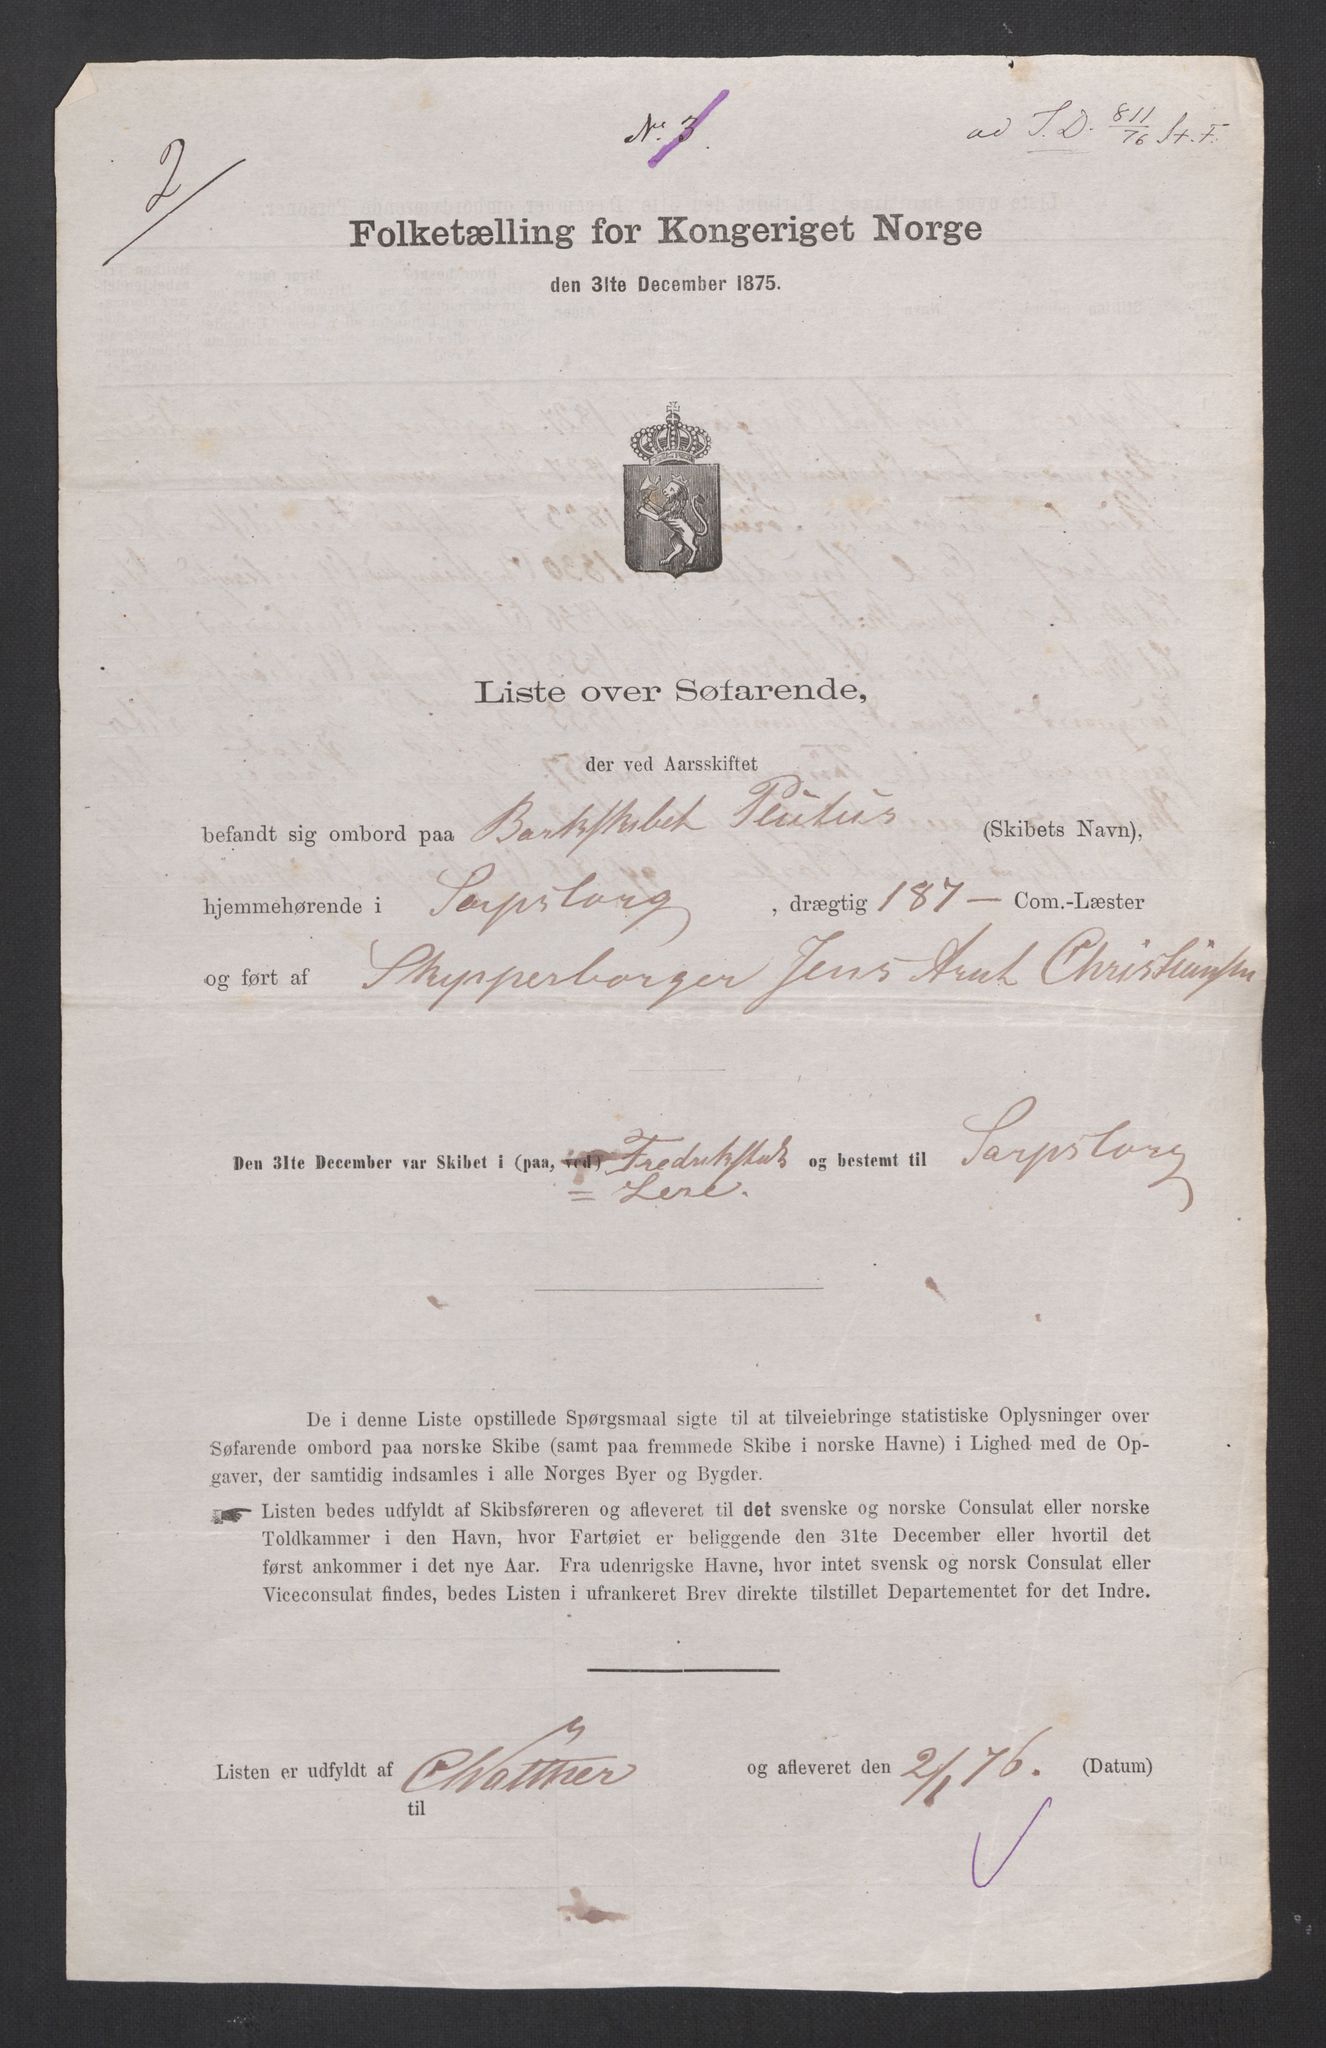 2/
No. 3.
ad I.D. 811/76 St. F.
Folketælling for Kongeriget Norge
den 31te December 1875.
Liste over Søfarende,
der ved Aarsskiftet
befandt sig ombord paa Barkskibet Plutus (Skibets Navn),
hjemmehørende i Sarpsborg, drægtig 187 — Com.-Læster
og ført af Skypperborger Jens Arnt Christiansen
Den 31te December var Skibet i (paa, ved) Fredrikstad og bestemt til Sarpsborg
=
De i denne Liste opstillede Spørgsmaal sigte til at tilveiebringe statistiske Oplysninger over
Søfarende ombord paa norske Skibe (samt paa fremmede Skibe i norske Havne) i Lighed med de Op-
gaver, der samtidig indsamles i alle Norges Byer og Bygder.
☛ Listen bedes udfyldt af Skibsføreren og afleveret til det svenske og norske Consulat eller norske
Toldkammer i den Havn, hvor Fartøiet er beliggende den 31te December eller hvortil det
først ankommer i det nye Aar. Fra udenrigske Havne, hvor intet svensk og norsk Consulat eller
Viceconsulat findes, bedes Listen i ufrankeret Brev direkte tilstillet Departementet for det Indre.
Listen er udfyldt af og afleveret den 2/1 76. (Datum)
til